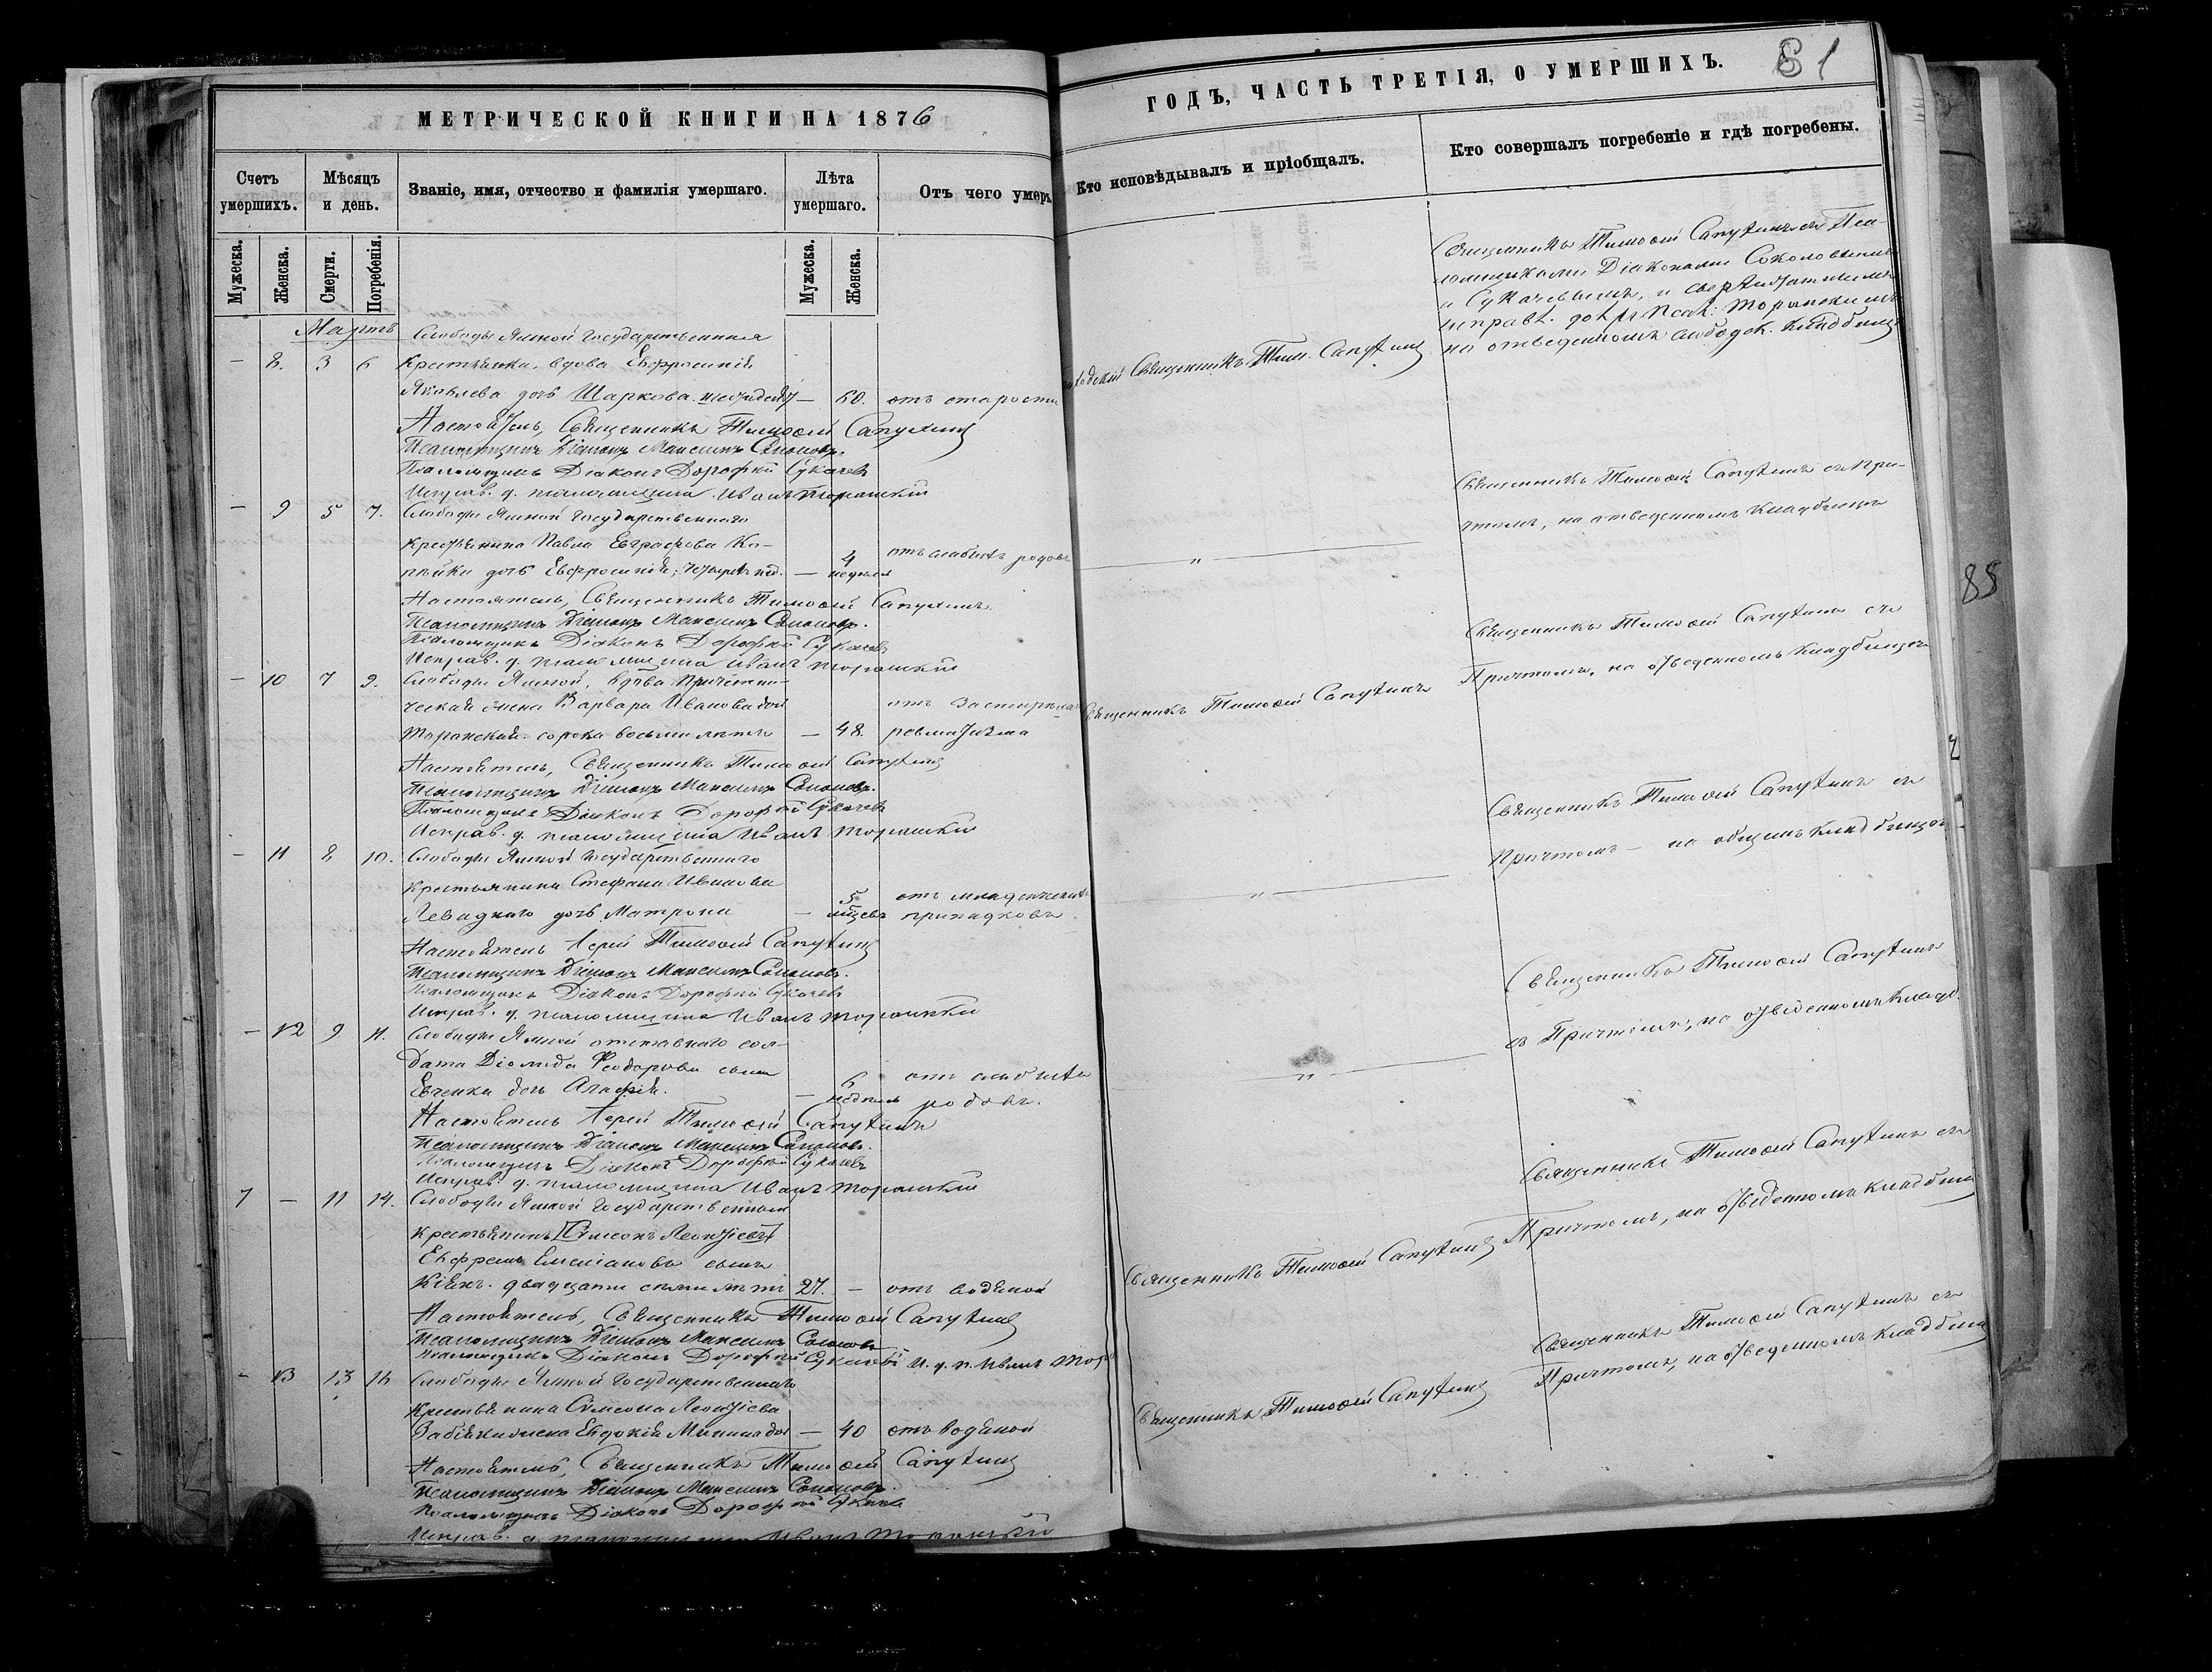 МЕТРИЧЕСКОЙ КНИГИ НА 1876
Счетъ умершихъ.
Мѣсяцъ и день.
Званіе, имя, отчество и фамилія умершаго.
Лѣта умершаго.
Отъ чего умеръ
Мужеска.
Женска.
Смерти.
Погребенія.
Мужеска.
Женска.
Мартъ
Слободы Ямной Государственная
— 8. 3 6 Крестьянка, вдова Евфросинія
Яковлева дочь Шаркова — 60. отъ старости
Настоятель, Священникъ Тимоѳей Сапухинъ
Псаломщикъ Діаконъ Максимъ
Псаломщикъ Діаконъ Дорофей Сукачевъ
Исправ. д. псаломщика Иванъ Торанскій
— 9 5 7. Слободы Ямной Государственнаго
Крестьянина Павла Евграфова Ко-
пѣйки дочь Евфросинія; — 4 недѣли отъ слабыхъ родовъ
Настоятель, Священникъ Тимоѳей Сапухинъ
Псаломщикъ Діаконъ Максимъ
Псаломщикъ Діаконъ Дорофей Сукачевъ
Исправ. д. псаломщика Иванъ Торанскій
— 10 7 9. Слободы Ямной, вдова Причетни-
ческая жена Варвара Иванова
Торанская. сорока восьми лѣтъ — 48. отъ ревматизма
Настоятель, Священникъ Тимоѳей Сапухинъ
Псаломщикъ Діаконъ Максимъ
Псаломщикъ Діаконъ Дорофей Сукачевъ
Исправ. д. псаломщика Иванъ Торанскій
— 11 8 10. Слободы Ямной Государственнаго
Крестьянина Стефана Иванова
Левадного дочь Матрона — 5 мѣсяцевъ отъ младенческихъ припадковъ
Настоятель Іерей Тимоѳей Сапухинъ
Псаломщикъ Діаконъ Максимъ
Псаломщикъ Діаконъ Дорофей Сукачевъ
Исправ. д. псаломщика Иванъ Торанскій
— 12 9 11. Слободы Ямной отставнаго сол-
дата Діомида Ѳеодорова сына
Евченка дочь Агафія. — 6 недѣль отъ слабыхъ родовъ.
Настоятель Іерей Тимоѳей Сапухинъ
Псаломщикъ Діаконъ Максимъ
Псаломщикъ Діаконъ Дорофей Сукачевъ
Исправ. д. псаломщика Иванъ Торанскій
7 — 11 14. Слободы Ямной Государственный
Крестьянинъ [Симеонъ Леонтіевъ]
Ефремъ Емеліановъ сынъ
двадцати семи лѣтъ 27. — отъ водяной
Настоятель, Священникъ Тимоѳей Сапухинъ
Псаломщикъ Діаконъ Максимъ
Псаломщикъ Діаконъ Дорофей Сукачевъ И. д. п. Иванъ Тор
— 13 13 16 Слободы Ямной Государственнаго
Крестьянина Симеона Леонтіева
жена Евдокія — 40 отъ водяной
Настоятель, Священникъ Тимоѳей Сапухинъ
Псаломщикъ Діаконъ Максимъ
Псаломщикъ Діаконъ Дорофей
Исправ. д. псаломщика Иванъ Торанскій
ГОДЪ, ЧАСТЬ ТРЕТІЯ, О УМЕРШИХЪ.
81
Кто исповѣдывалъ и пріобщалъ.
Кто совершалъ погребеніе и гдѣ погребены.
Священникъ Тимоѳей Сапухинъ съ Пса-
ломщиками Діаконами Соколовымъ
и Сукачевымъ, и
исправл. Торанскимъ
Священникъ Тим. Сапухинъ
на отведенномъ слободск. кладбищѣ
Священникъ Тимоѳей Сапухинъ съ при-
чтомъ, на отведенномъ кладбищѣ
— " —
Священникъ Тимоѳей Сапухинъ съ
Причтомъ, на отведенномъ кладбищѣ
Священникъ Тимоѳей Сапухинъ
Священникъ Тимоѳей Сапухинъ съ
Причтомъ — на общемъ кладбищѣ
— " —
Священникъ Тимоѳей Сапухинъ
съ Причтомъ, на отведенномъ кладб.
— " —
Священникъ Тимоѳей Сапухинъ съ
Причтомъ, на отведенномъ кладбищ
Священникъ Тимоѳей Сапухинъ
Священникъ Тимоѳей Сапухинъ съ
Причтомъ, на отведенномъ кладбищ
Священникъ Тимоѳей Сапухинъ
85